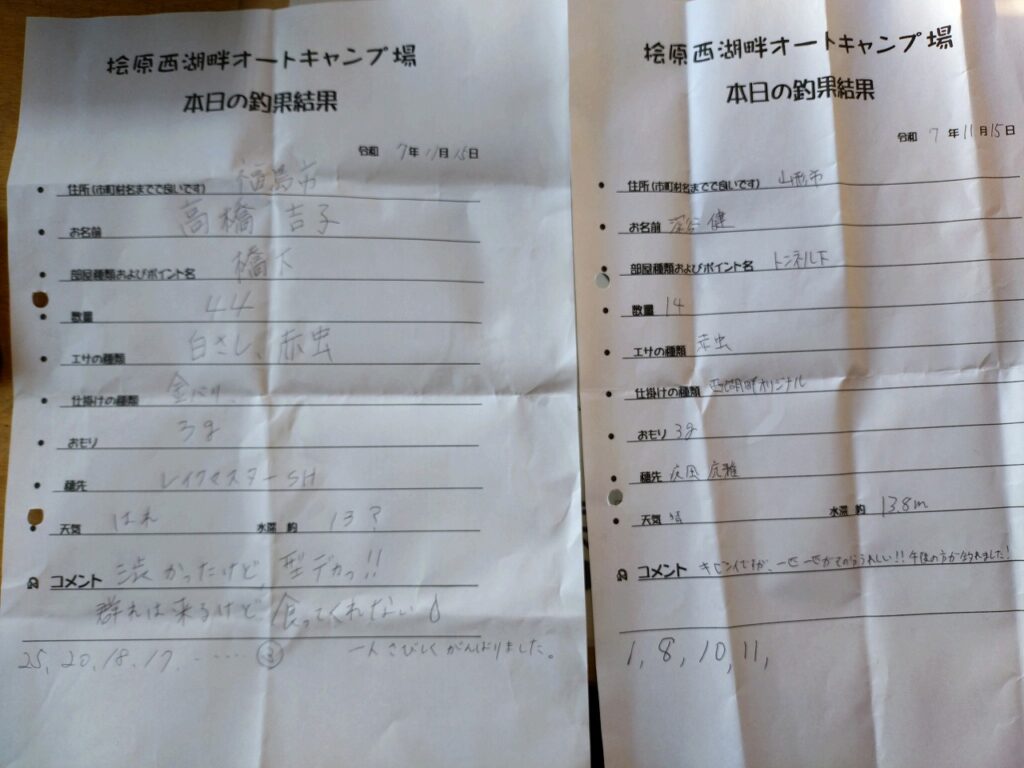 桧原西湖畔オートキャンプ場
本日の釣果結果
令和 7年 11月 15日
住所(市町村名までで良いです) 福島市
お名前 高橋 吉子
部屋種類およびポイント名 橋下
数量 44
エサの種類 白さし、赤虫
仕掛けの種類 金バリ
おモリ 3g
穂先 レイクマスターSH
天気 はれ 水深 約 13?
コメント 渋かったけど、型デカっ!!
群れは来るけど、食ってくれない
25, 20, 18, 17, ‥‥‥ ③ 一人さびしくがんばりました。
桧原西湖畔オートキャンプ場
本日の釣果結果
令和 7年 11月 15日
住所(市町村名までで良いです) 山形市
お名前 深谷 健
部屋種類およびポイント名 トンネル下
数量 14
エサの種類 赤虫
仕掛けの種類 西湖畔オリジナル
おモリ 3g
穂先
天気 水深 約 13.8m
コメント 一匹一匹がうれしい!!午後の方が釣れました!
1, 8, 10, 11,